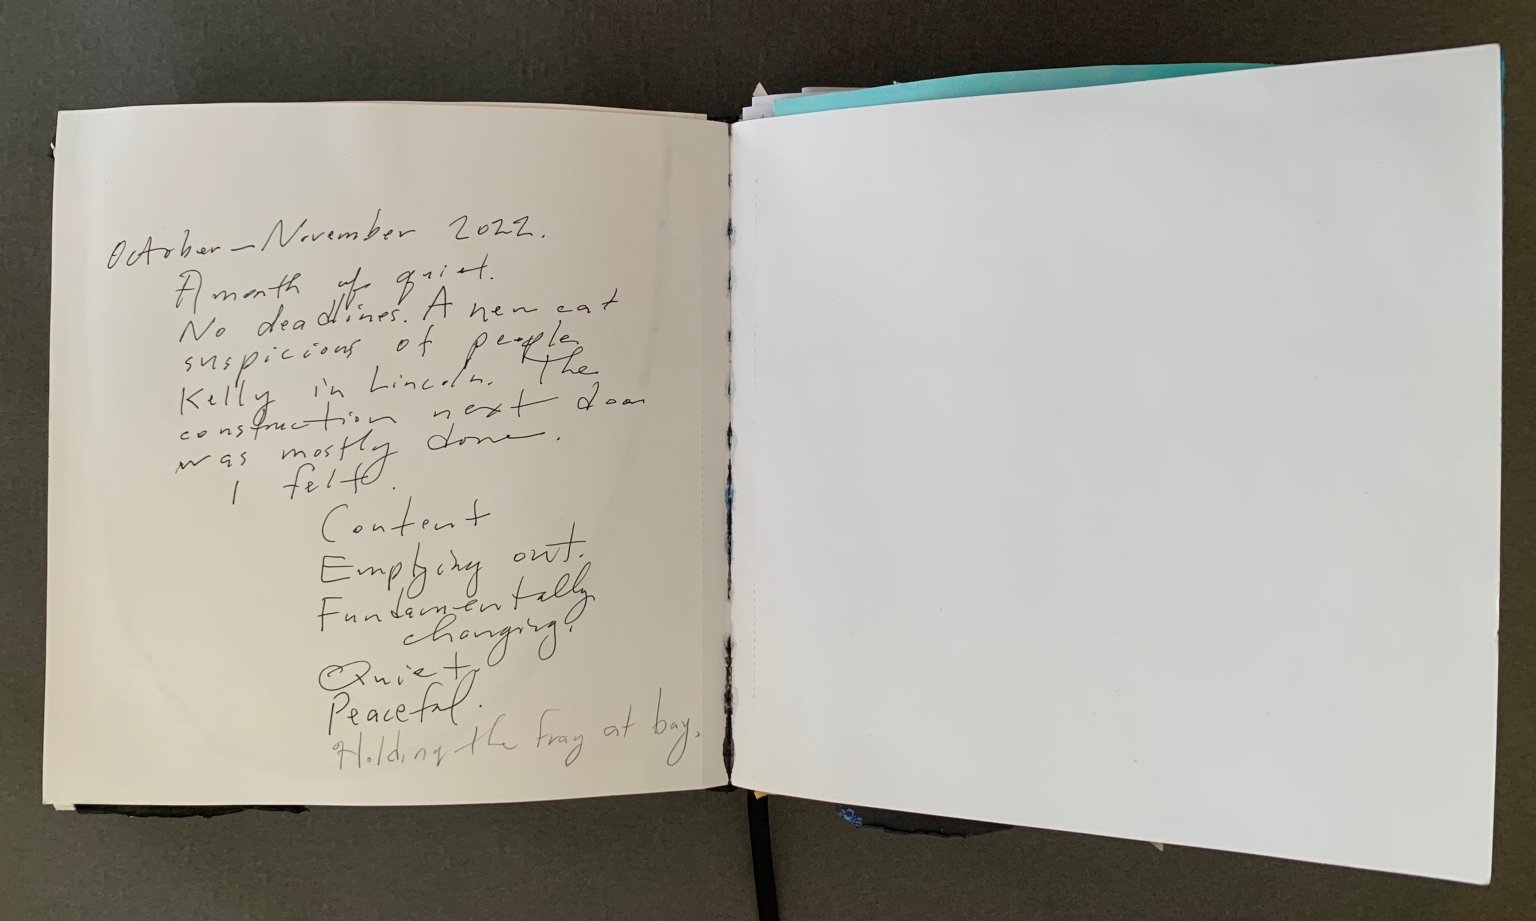 October – November 2022.
A month of quiet.
No deadlines. A new cat
suspicious of people.
Kelly in Lincoln. The
construction next door
was mostly done.
I felt.
Content
Emptying out.
Fundamentally
changing.
Quiet.
Peaceful.
Holding the fray at bay.